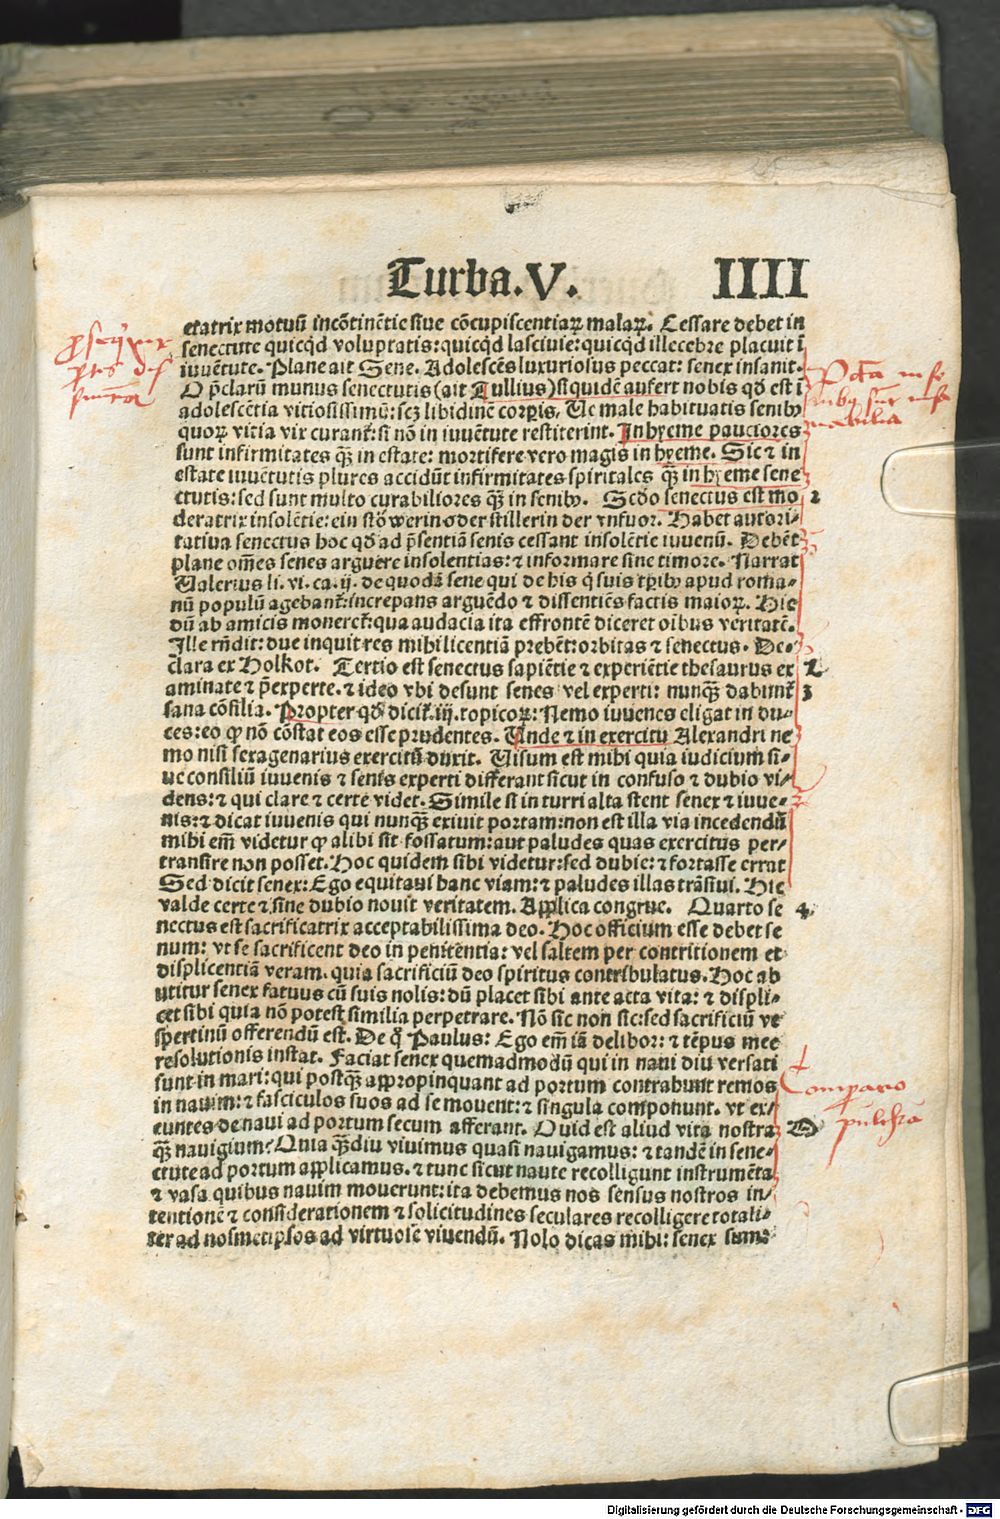 Turba.V. IIII
etatrix motuū incōtinētie siue cōcupiscentiaꝝ malaꝝ. Cessare debet in
senectute quicqd voluptatis: quicqd lasciuie: quicqd illecebre placuit ī
iuuētute. Plane ait Sene. Adolescēs luxuriosus peccat: senex insanit.
O p̄clarū munus senectutis (ait Tullius) siquidē aufert nobis qd est ī
adolescētia vitiosissimū: scz libidinē corpis. Ue male habituatis senibꝰ
quoꝝ vitia vix curant̄: si nō in iuuētute restiterint. In hyeme pauciores
sunt infirmitates qꝫ in estate: mortifere vero magis in hyeme. Sic ⁊ in
estate iuuētutis plures accidūt infirmitates spirituales qꝫ in hyeme sene
ctutis: sed sunt multo curabiliores qꝫ in senibꝰ. Scdo senectus est mo 2
deratrix insolētie: ein stōwerin oder stillerin der vnfuor. Habet autori⸗
tatiua senectus hoc qd ad p̄sentiā senis cessant insolētie iuuenū. Debēt
plane oēs senes arguere insolentias: ⁊ informare sine timore. Narrat
Ualerius li. vi. ca. ij. de quodā sene qui de his q̄ suis tp̄ibꝰ apud roma⸗
nū populū agebant̄: increpans arguēdo ⁊ dissentiēs factis maioꝝ. Hic
dū ab amicis moneret̄: qua audacia ita effrontē diceret oibus veritatē.
Ille rn̄dit: due inquit res mihi licentiā prebēt: orbitas ⁊ senectus. De⸗
clara ex Holkot. Tertio est senectus sapiētie ⁊ experiētie thesaurus ex
aminate ⁊ p̄experte. ⁊ ideo vbi desunt senes vel experti: nunqꝫ dabunt̄ 3
sana cōsilia. Propter qd dicit̄. iij. topicoꝝ: Nemo iuuenes eligat in du⸗
ces: eo ꝙ nō cōstat eos esse prudentes. Unde ⁊ in exercitu Alexandri ne
mo nisi sexagenarius exercitū duxit. Uisum est mihi quia iudicium si⸗
ue consiliū iuuenis ⁊ senis experti differant sicut in confuso ⁊ dubio vi⸗
dens: ⁊ qui clare ⁊ certe videt. Simile st in turri alta stent senex ⁊ iuue⸗
nis: ⁊ dicat iuuenis qui nunqꝫ exiuit portam: non est illa via incedendū
mihi em̄ videtur ꝙ alibi sit fossatum: aut paludes quas exercitus per⸗
transire non posset. Hoc quidem sibi videtur: sed dubie: ⁊ fortasse errat
Sed dicit senex: Ego equitaui hanc viam: ⁊ paludes illas trāsiui. Hic
valde certe ⁊ sine dubio nouit veritatem. Applica congrue. Quarto se 4.
nectus est sacrificatrix acceptabilissima deo. Hoc officium esse debet se
num: vt se sacrificent deo in penitentia: vel saltem per contritionem et
displicentiā veram. quia sacrificiū deo spiritus contribulatus. Hoc ab
utitur senex fatuus cū suis nolis: dū placet sibi ante acta vita: ⁊ displi⸗
cet sibi quia nō potest similia perpetrare. Nō sic non sic: sed sacrificiū ve
spertinū offerendū est. De q̄ Paulus: Ego em̄ iā delibor: ⁊ tēpus mee
resolutionis instat. Faciat senex quemadmodū qui in naui diu versati
sunt in mari: qui postqꝫ appropinquant ad portum contrahunt remos
in nauim: ⁊ fasciculos suos ad se mouent: ⁊ singula componunt. vt ex⸗
euntes de naui ad portum secum afferant. Quid est aliud vita nostra
qꝫ nauigium? Quia qꝫdiu viuimus quasi nauigamus: ⁊ tandē in sene⸗
ctute ad portum applicamus. ⁊ tunc sicut naute recolligunt instrumēta
⁊ vasa quibus nauim mouerunt: ita debemus nos sensus nostros in⸗
tentionē ⁊ considerationem ⁊ solicitudines seculares recolligere totali⸗
ter ad nosmetipsos ad virtuose viuendū. Nolo dicas mihi: senex sum⸗
Comparatio
pulchra
Digitalisierung gefördert durch die Deutsche Forschungsgemeinschaft - DFG